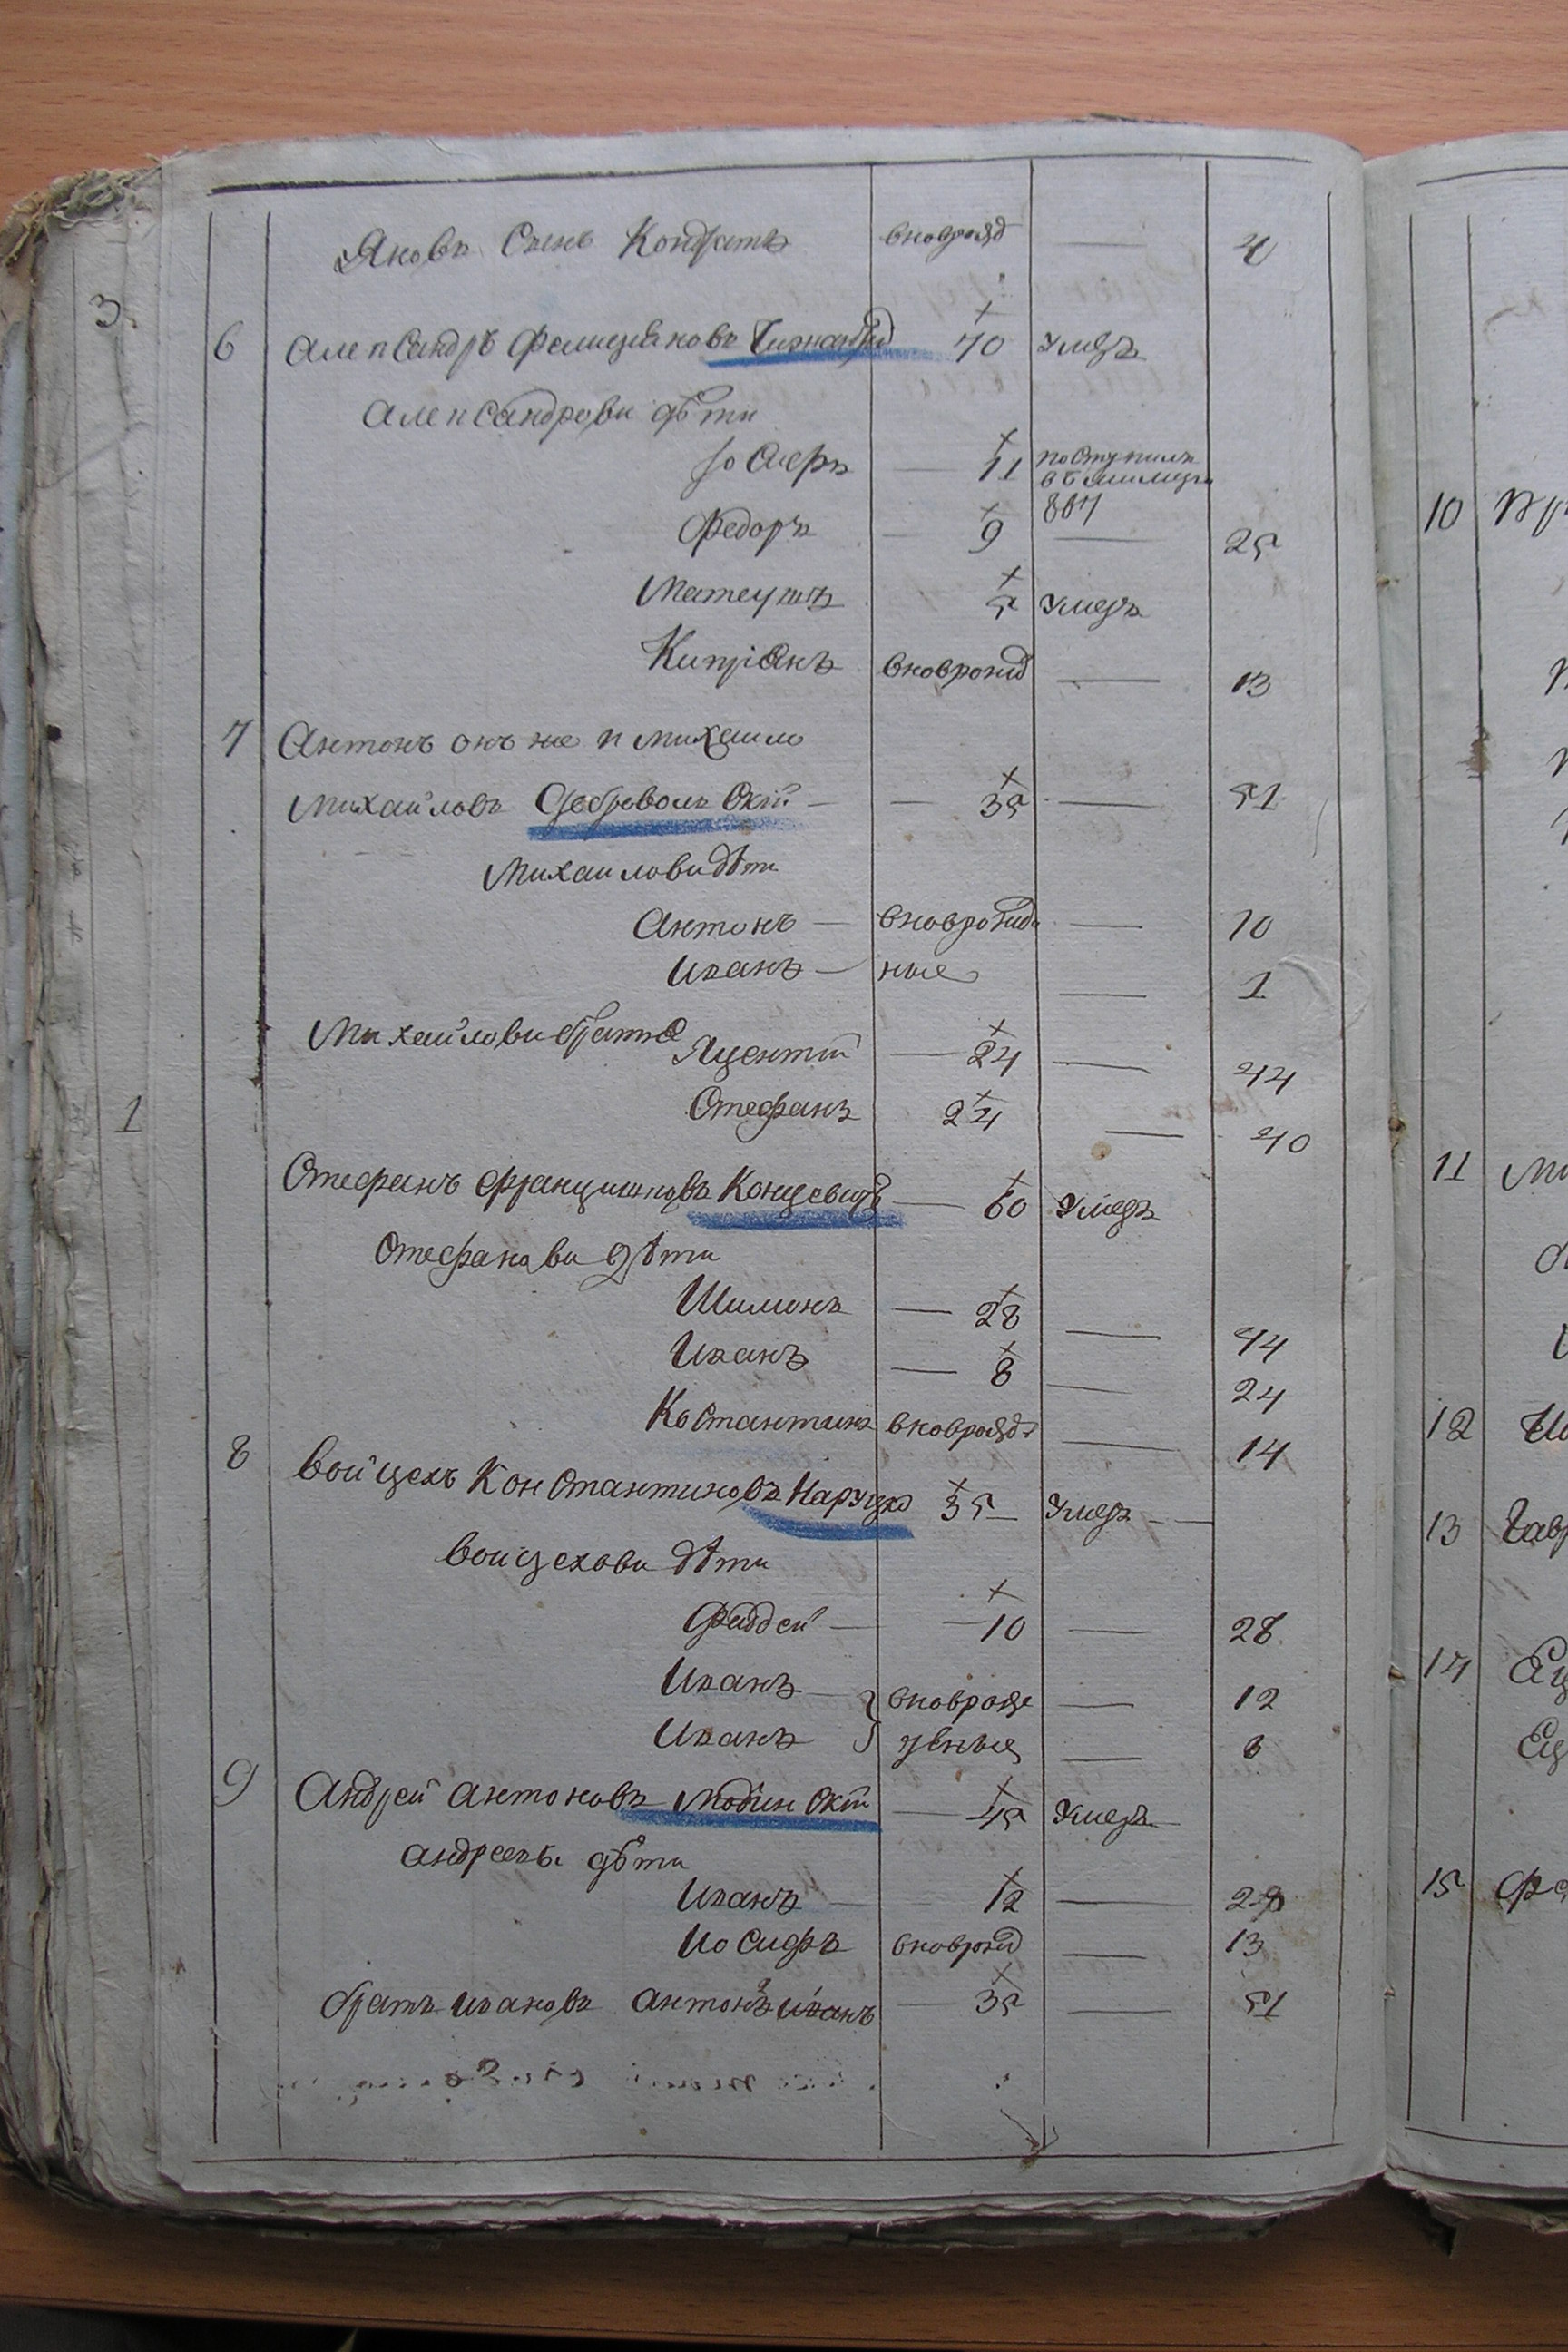 Яковъ Сынъ Кондратъ вноврожд — 4
3
6 Александръ Фелицiяновъ 70 умеръ
Александрови дѣти
Iосифъ — 11 поступилъ
въ милицiи
807
Федоръ — 9 — 25
Матеушъ 5 умеръ
Кипрiянъ вноврожд — 13
7 Антонъ онъ же и михаило
михайловъ — — 35 — 51
Михаилови дѣти
Антонъ — вноврожде — 10
Иванъ — ные — 1
Михайлови братья
Яцентiй — 24 — 44
1
Стефанъ 24 — 40
Стефанъ францишковъ Концевичъ — 60 умеръ
Стефанови дѣти
Шимонъ — 28 — 44
Иванъ — 8 — 24
Костантинъ вноврожд — 14
8 Войцехъ Константиновъ Наруцко 35 умеръ —
войцехови дѣти
Фаддей — 10 — 28
Иванъ — вноврожде — 12
Иванъ — 6
9 Андрей антоновъ — 45 умеръ
андреевы дѣти
Иванъ — 12 —
Иосифъ вноврожд — 13
братъ ивановъ антонъ иванъ — 35 — 51
10
11
12
13
14
15